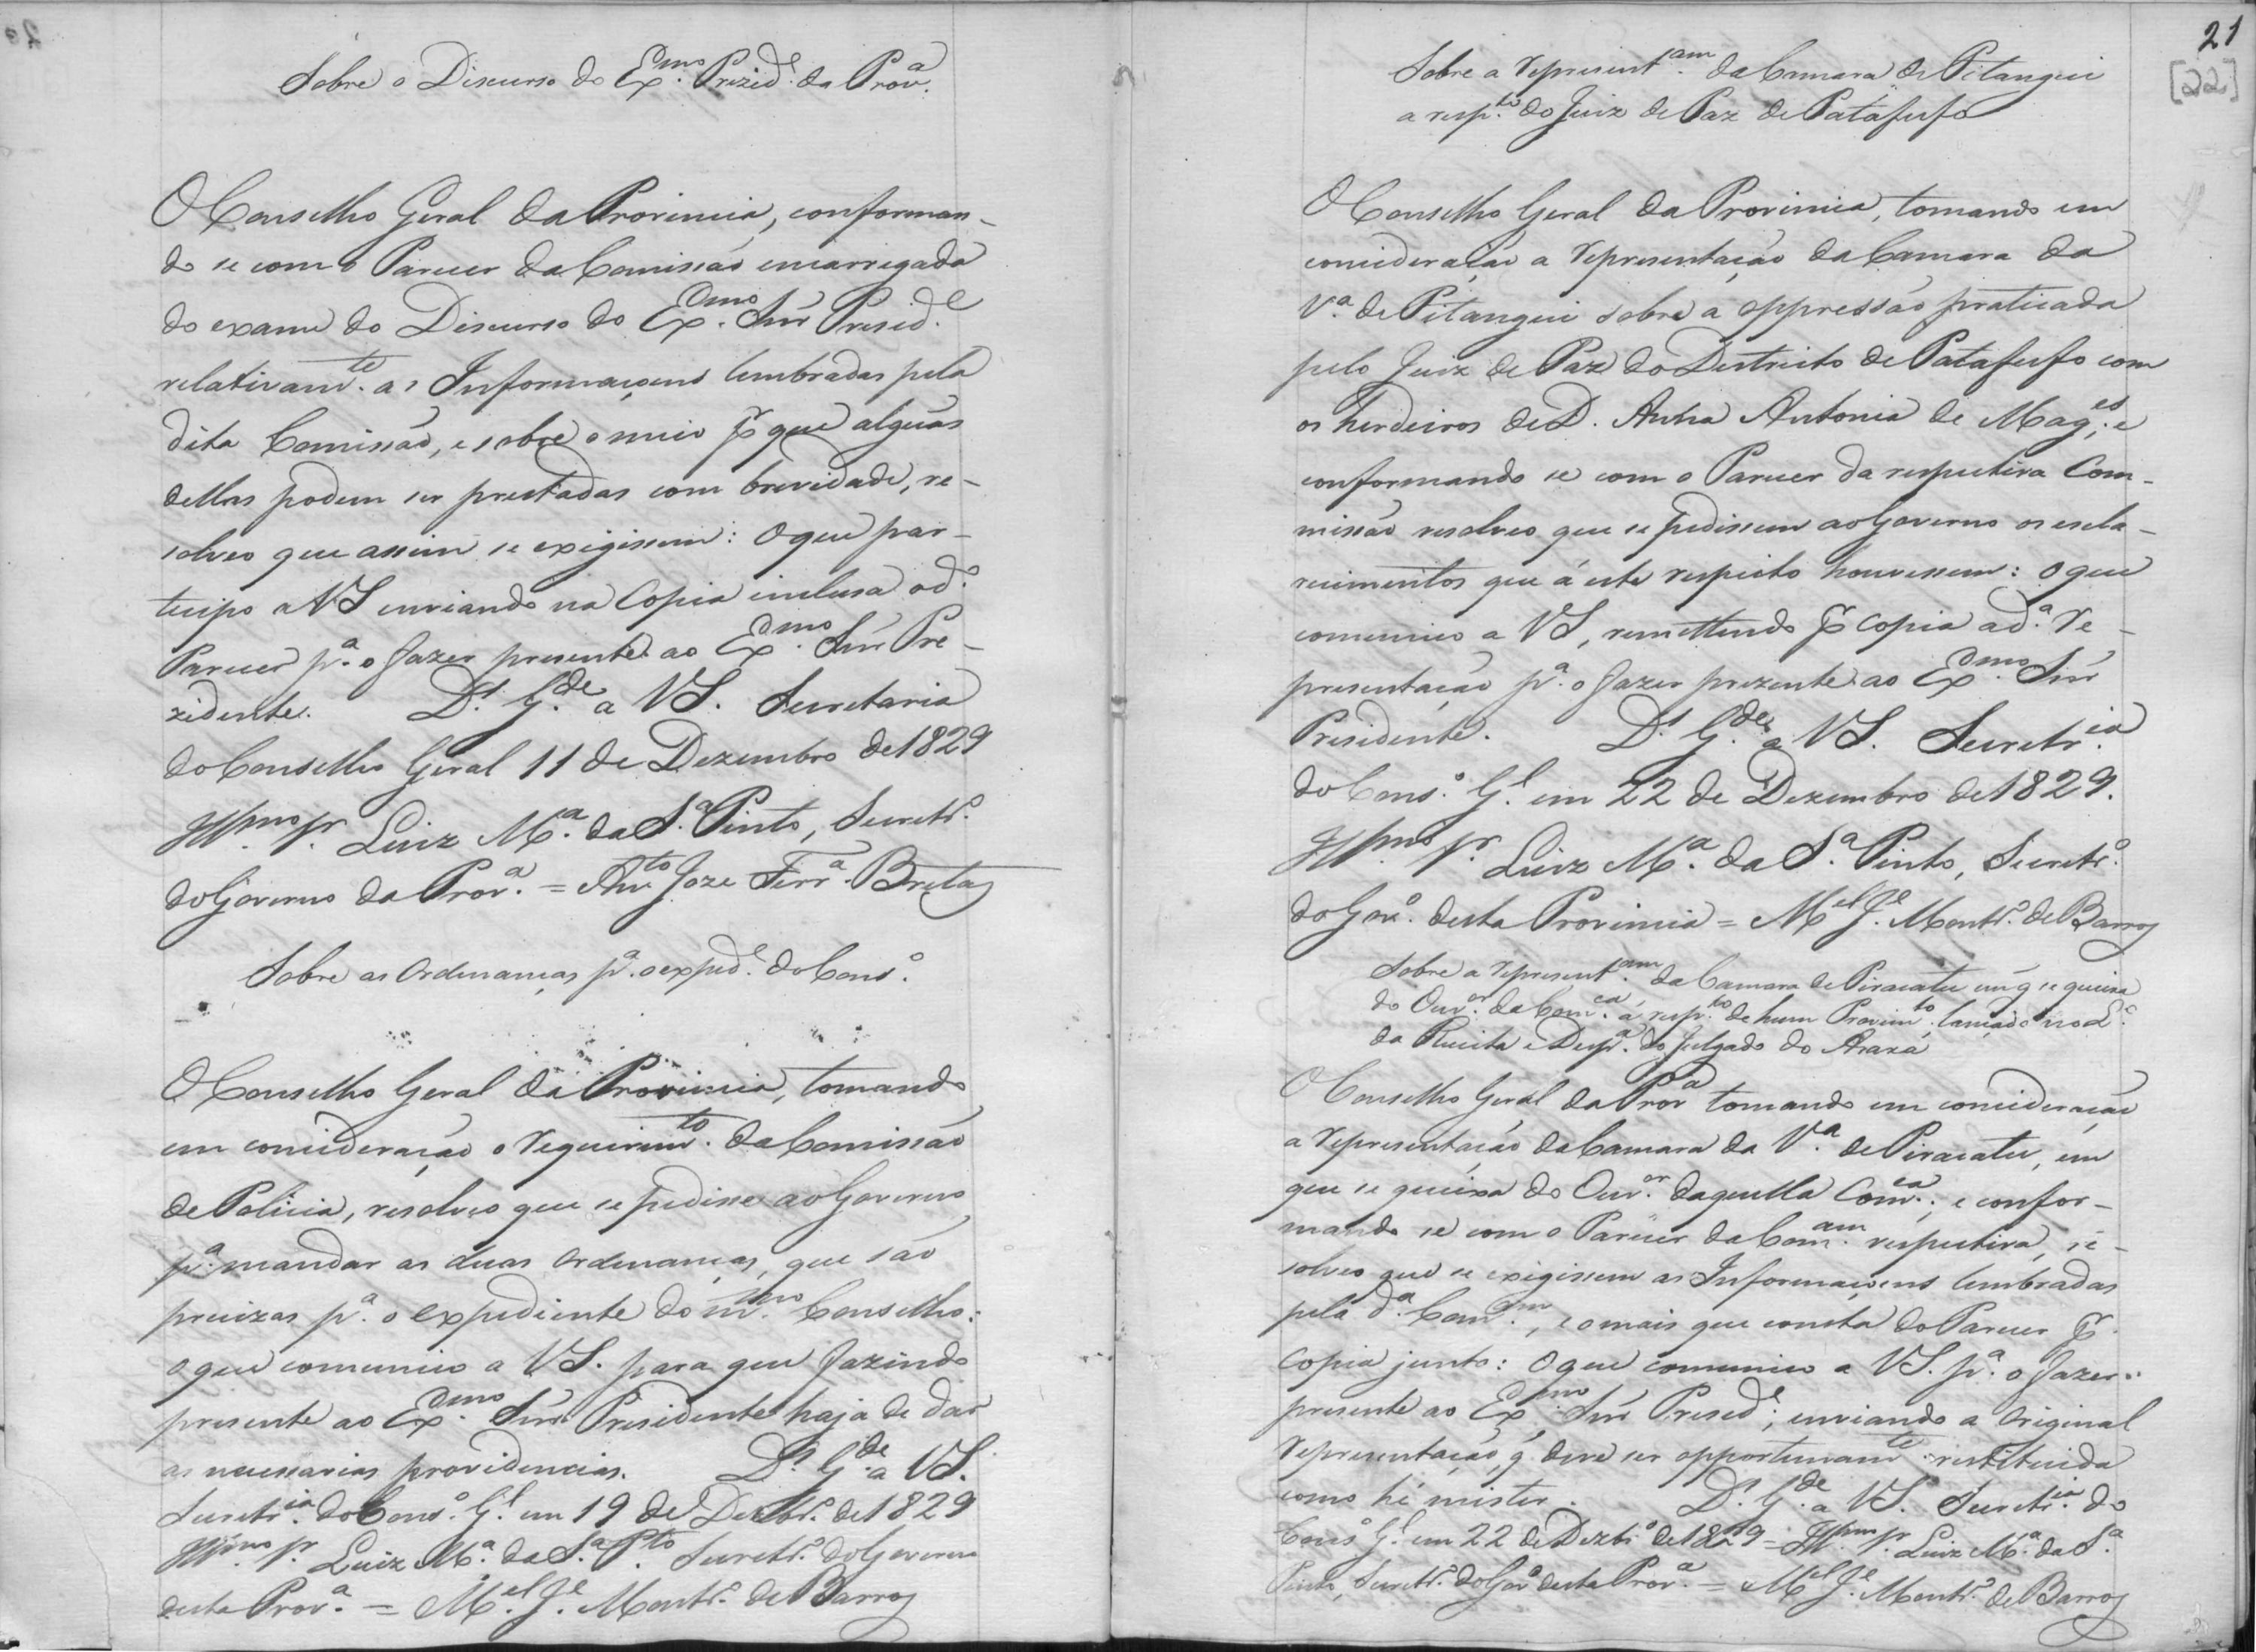 Sobre o Discurso do Exmo. Prezide. da Prova.
O Conselho Geral da Provincia, conforman-
do se com o Parecer da Comissão encarregada
do exame do Discurso do Exmo. Snr Preside.
relativamte. as Informaçoens lembradas pela
dita Comissão, e sobre o meio pr que algũas
dellas podem ser prestadas com brevidade, re-
solveo que assim se exigissem: O que par-
ticipo a VS enviando na Copia inclusa o do.
Parecer pa. o fazer presente ao Exmo. Snr Pre-
zidente. Ds. Gde. a VS. Secretaria
do Conselho Geral 11 de Dezembro de 1829
Illmo. Sr. Luiz Ma. da Sa. Pinto, Secretro.
do Governo da Prova. = Anto. Joze Ferra. Bretas
Sobre as Ordenanças pa. o expede. do Conso.
O Conselho Geral da Provincia, tomando
em concideração o Requerimto. da Comissão
de Policia, resolveo que se pedisse ao Governo
pa. mandar as duas Ordenanças, que são
precizas pa. o expediente do mmo. Conselho:
o que comunico a VS. para que fazendo
presente ao Exmo. Snr. Presidente haja de dar
as necessarias providencias. Ds. Gde. a VS.
Secretria. do Conso. Gl. em 19 de Dezbro. de 1829
Illmo. Sr. Luiz Ma. da Sa. Pto. Secretro. do Governo
desta Prova. = Mel. Je. Montro. de Barros
21
[22]
Sobre a representam. da Camara de Pitangui
a respto. do Juiz de Paz de Patafufo
O Conselho Geral da Provincia, tomando em
concideração a representação da Camara da
Va. de Pitangui sobre a oppressão praticada
pelo Juiz de Paz do Destricto de Patafufo com
os herdeiros de D. Anna Antonia de Mages., e
conformando se com o Parecer da respectiva Com-
missão resolveo que se pedissem ao Governo os escla-
recimentos que á este respeito houvessem: o que
comunico a VS, remettendo pr copia a da. Re-
presentação pa. o fazer prezente ao Exmo. Snr
Presidente. Ds. Gde. a VS. Secretria.
do Conso. Gl. em 22 de Dezembro de 1829.
Illmo. Sr. Luiz Ma. da Sa. Pinto, Secretro.
do Gno. desta Provincia = Mel. Je. Montro. de Barros
Sobre a representam. da Camara de Piracatu em q se queixa
do Ouvor. da Comca. a respto. de hum Provimto. lançado no Lo.
da Receita e Despa. do Julgado do Araxá
O Conselho Geral da Prova tomando em concideração
a representação da Camara da Va. de Piracatu, em
que se queixa do Ouvor. daquella Comca.; e confor-
mando se com o Parecer da Comam. respectiva, re-
solveo que se exigissem as Informaçoens lembradas
pela da. Comam., e o mais que consta do Parecer pr.
Copia junto: O que comunico a VS. pa. o fazer
presente ao Exmo. Snr Presede.; enviando a Original
representação, q. deve ser opportunamte restituida
como hé mister. Ds. Gde. a VS. Secretria. do
Conso Gl. em 22 de Dezbro de 1829 = Illmo. Sr. Luiz Ma. da Sa.
Pinto, Secretro. do Govo desta Prova. = Mel Je. Montro. de Barros